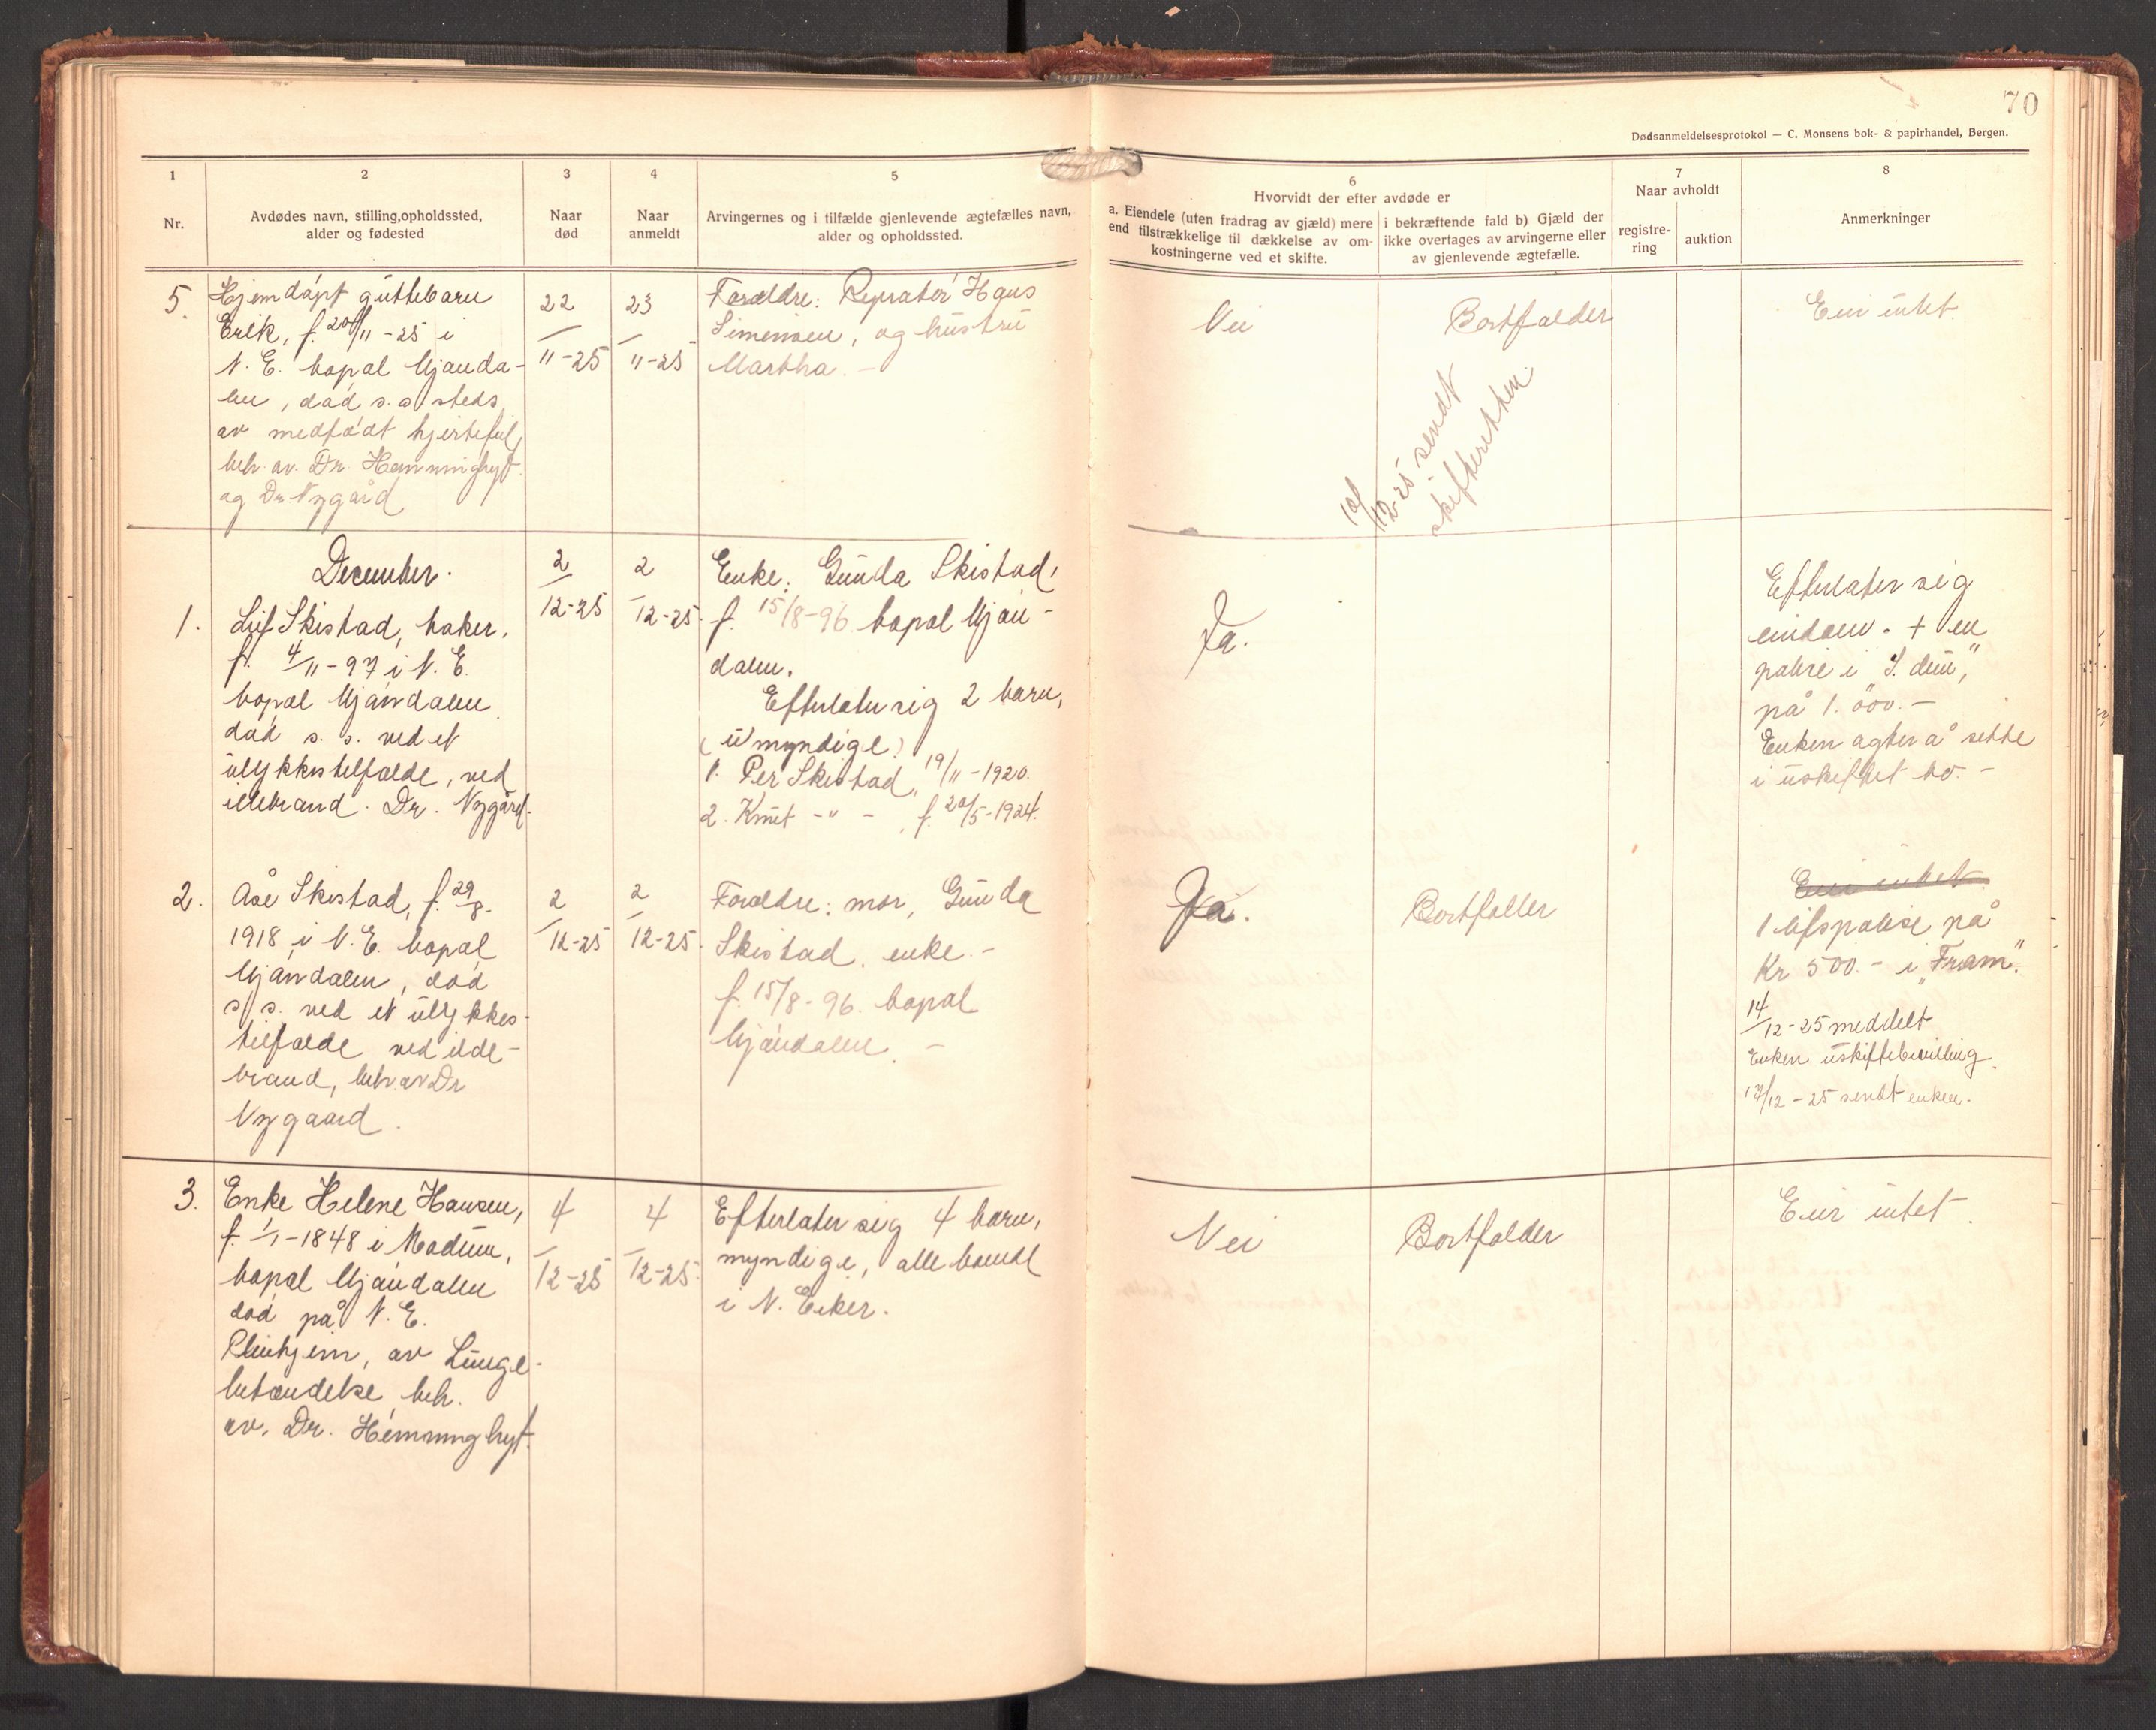 70
Dødsanmeldelsesprotokol — C. Monsens bok- & papirhandel, Bergen.
1
Nr.
2
Avdødes navn, stilling, opholdssted,
alder og fødested
3
Naar
død
4
Naar
anmeldt
5
Arvingernes og i tilfælde gjenlevende ægtefælles navn,
alder og opholdssted.
6
Hvorvidt der efter avdøde er
a. Eiendele (uten fradrag av gjæld) mere
end tilstrækkelige til dækkelse av om-
kostningerne ved et skifte.
i bekræftende fald b) Gjæld der
ikke overtages av arvingerne eller
av gjenlevende ægtefælle.
7
Naar avholdt
registre-
ring
auktion
8
Anmerkninger
5.
Hjemdøpt guttebarn
Erik, f. 20/11-25 i
N. E. bopal Mjønda-
len, død s. s. steds
av medfødt hjertefeil,
beh. av. Dr. Hemminghyt.
og Dr Nygård
22/11-25
23/11-25
Forældre: Hans
Simensen, og hustru
Martha. -
Nei
Bortfalder
Eier intet
10/12-25 sendt
skifteretten.
December.
1.
Leif Skistad, baker,
f. 4/11-97 i N. E.
bopal Mjøndalen
død s. s. ved et
ulykkestilfælde, ved
ildebrand. Dr. Nygård.
2/12-25
2/12-25.
Enke: Gunda Skistad,
f. 15/8-96. bopal Mjøn-
dalen.
Efterlater sig 2 barn,
(umyndige)
1. Per Skistad, 19/11-1920.
2. Knut -"- , f. 20/5-1924.
Ja.
Efterlater sig
eiendom. + en
police i
på 1.000.-
Enken agter å sitte
i uskiftet bo. -
2.
Åse Skistad, f. 29/8-
1918 i N. E. bopal
Mjøndalen, død
s. s. ved et ulykkes-
tilfælde ved ilde-
brand, beh. av Dr
Nygaard.
2/12-25
2/12-25.
Forældre: mor, Gunda
Skistad. enke. -
f. 15/8-96. bopal
Mjøndalen. -
Ja.
Bortfaller
Eier intet
1 lifspolise på
Kr 500.- i „Fram".
14/12-25 meddelt
Enken uskiftebevilling.
17/12-25 sendt enken.
3.
Enke Helene Hansen,
f. 1/1-1848 i Modum,
bopal Mjøndalen
død på N. E.
Pleiehjem, av Lunge-
betændelse, beh.
av. Dr. Hemminghyt.
4/12-25
4/12-25.
Efterlater sig 4 barn,
myndige, alle boende
i N. Eiker.
Nei
Bortfalder
Eier intet.